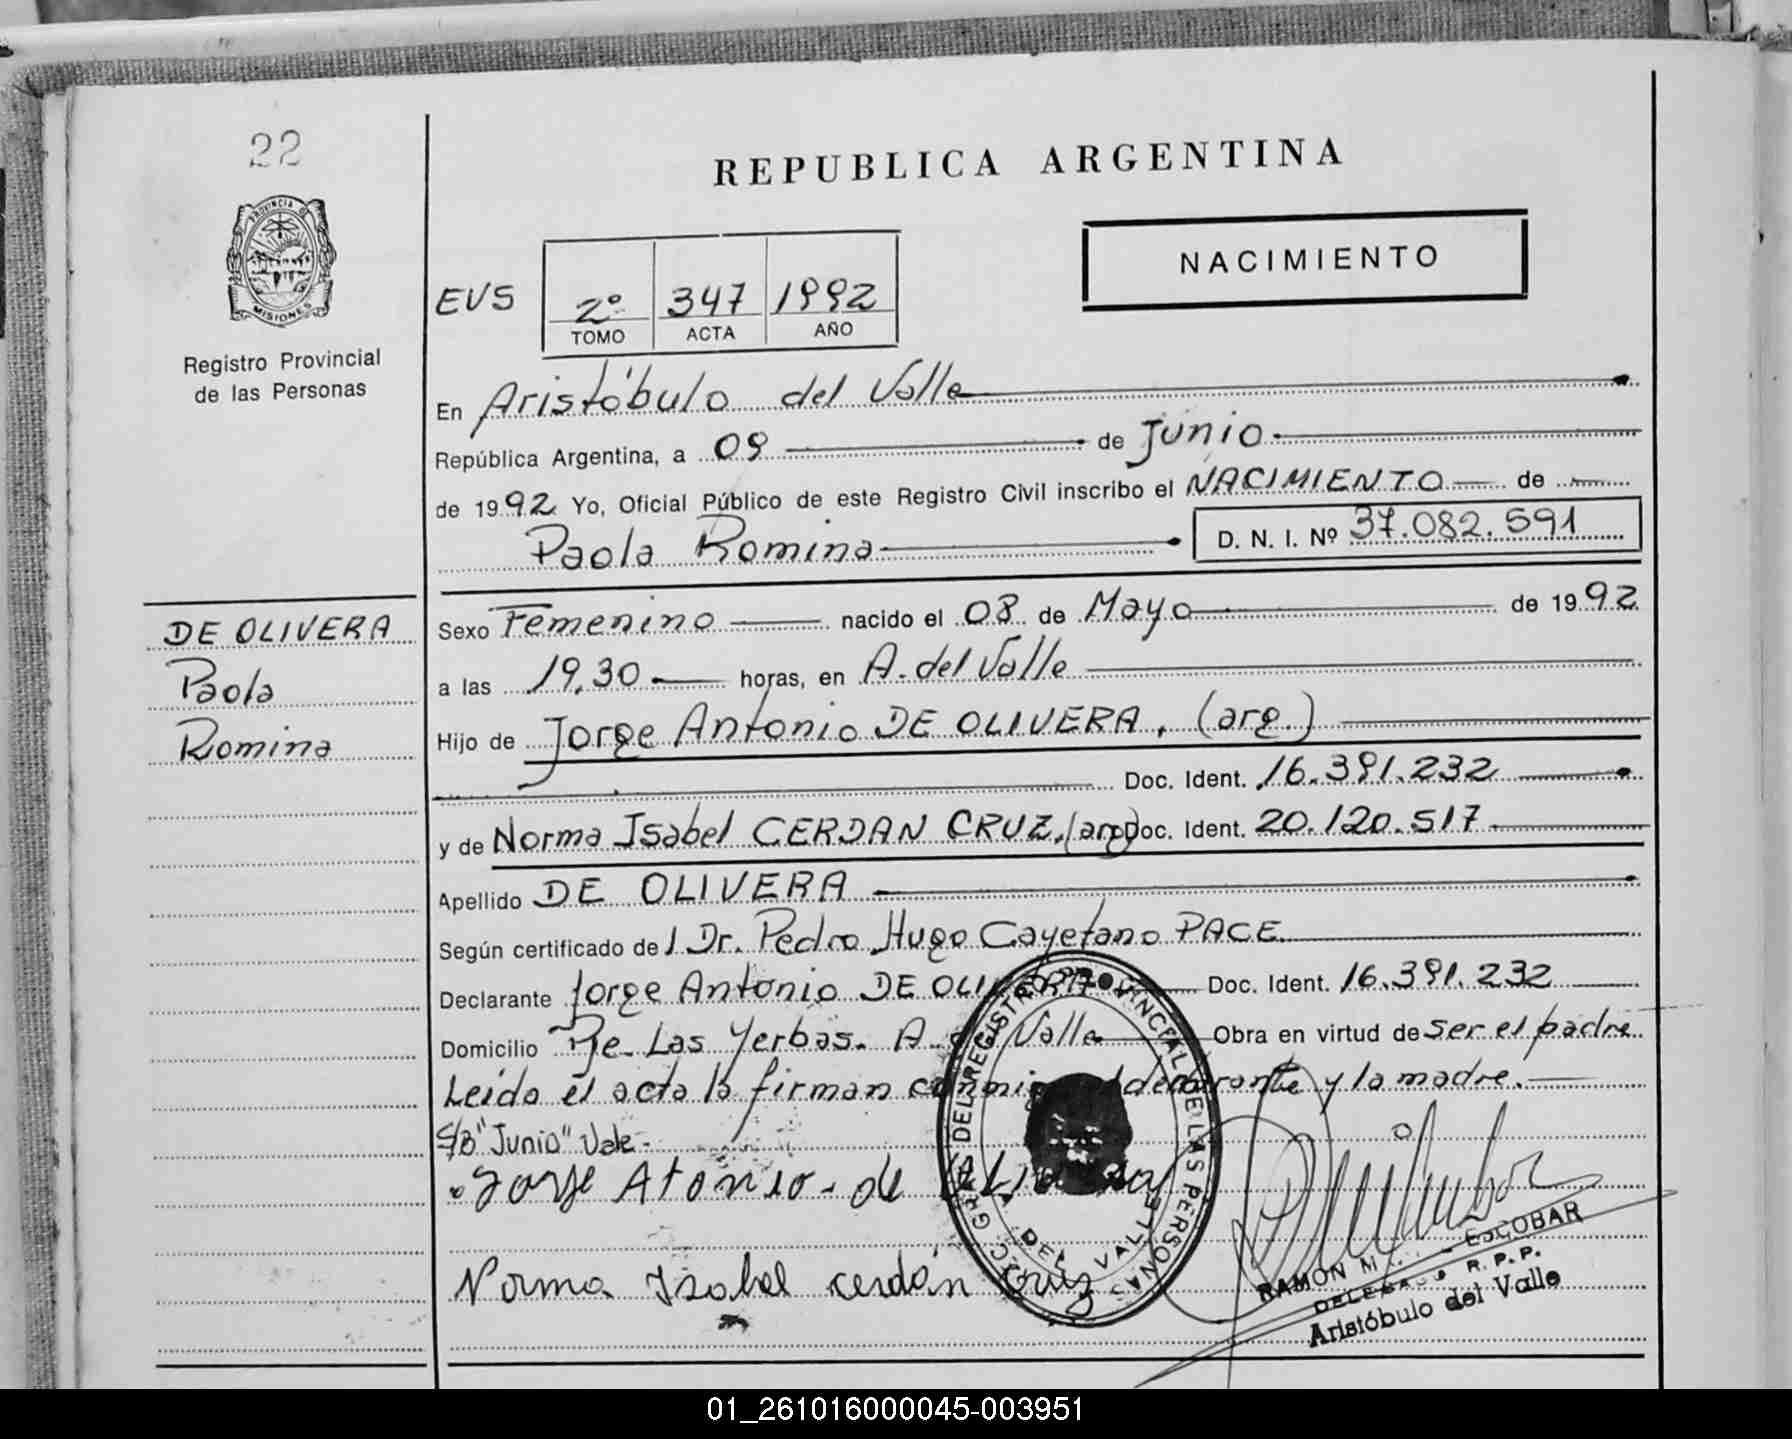 22
REPUBLICA ARGENTINA
PROVINCIA DE
MISIONES
NACIMIENTO
EVS 2º 347 1992
TOMO ACTA AÑO
Registro Provincial
de las Personas
En Aristóbulo del Valle
República Argentina, a 09 de Junio
de 1992 Yo, Oficial Público de este Registro Civil inscribo el NACIMIENTO de
Paola Romina D. N. I. Nº 37.082.591
DE OLIVERA
Paola
Romina
Sexo Femenino nacido el 08 de Mayo de 1992
a las 19,30 horas, en A. del Valle
Hijo de Jorge Antonio DE OLIVERA, (arg.)
Doc. Ident. 16.391.232
y de Norma Isabel CERDAN CRUZ, (arg) Doc. Ident. 20.120.517
Apellido DE OLIVERA
Según certificado de Dr. Pedro Hugo Cayetano PACE
Declarante Jorge Antonio DE OLIVERA Doc. Ident. 16.391.232
Domicilio Pje. Las Yerbas. A. del Valle Obra en virtud de ser el padre
Leída el acta la firman conmigo el declarante y la madre.
S/B "Junio" Vale-
Jorge Atonio de Olivera
Norma Isabel cerdán Cruz
DEL REGISTRO PROVINCIAL DE LAS PERSONAS
DEL VALLE
RAMON M. ESCOBAR
DELEGADO R. P. P.
Aristóbulo del Valle
01_261016000045-003951